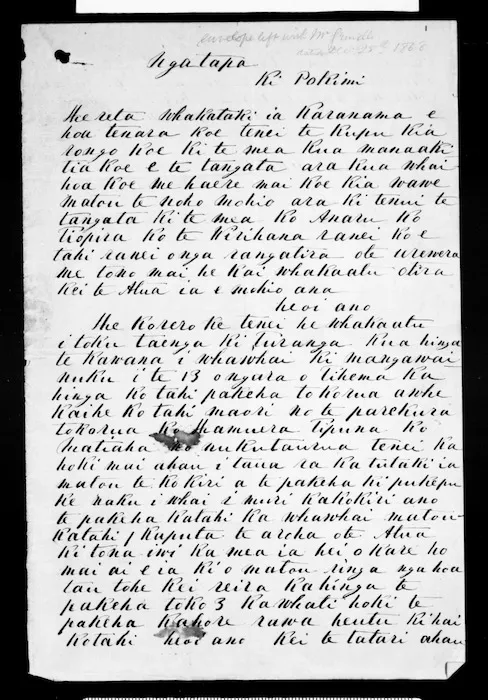 envelope left with Mr
1868
Ngatapa
Ki Pokimi
He reta whakataki ia Karanama e
hoa tenara koe tenei te kupu kia
rongo koe ki te mea kua manaaki
tia koe e te tangata ara kua whai
hoa koe me haere mai koe kia wawe
matou te noho mohio ara ki tenei te
tangata ki te mea ko Anaru ko
Tiopira ko te Kirihana ranei ko e
tahi ranei o nga rangatira ote urewera
me tono mai he kai whakaatu otira
kei te Atua ia e mohio ana
heoi ano
He korero ke tenei he whakaatu
i toku taenga ki Turanga Kua hinga
te Kawana i whawhai ki mangawai
nuku i te 13 o ngara o tihema ka
hinga ko tahi pakeha tokorua awhe
kaihe ko tahi maori no te parekura
tokorua ko Hamuera Tipuna ko
matiaha no nukutaurua tenei ka
hoki mai ahau i taua ra ka tutaki ia
matou te kokiri a te pakeha ki puhepu
ke naku i whai i muri kakokiri ano
te pakeha katahi ka whawhai matou
katahi / kaputa te aroha ote Atua
ki tona iwi ka mea ia hei o kare ho
mai ai e ia ki o matou ringa nga hoa
tau tohe kei reira kahinga te
pakeha toko 3 kawhati hoki te
pakeha kahore rawa heutu kihai
kotahi heoi ano kei te tatari ahau